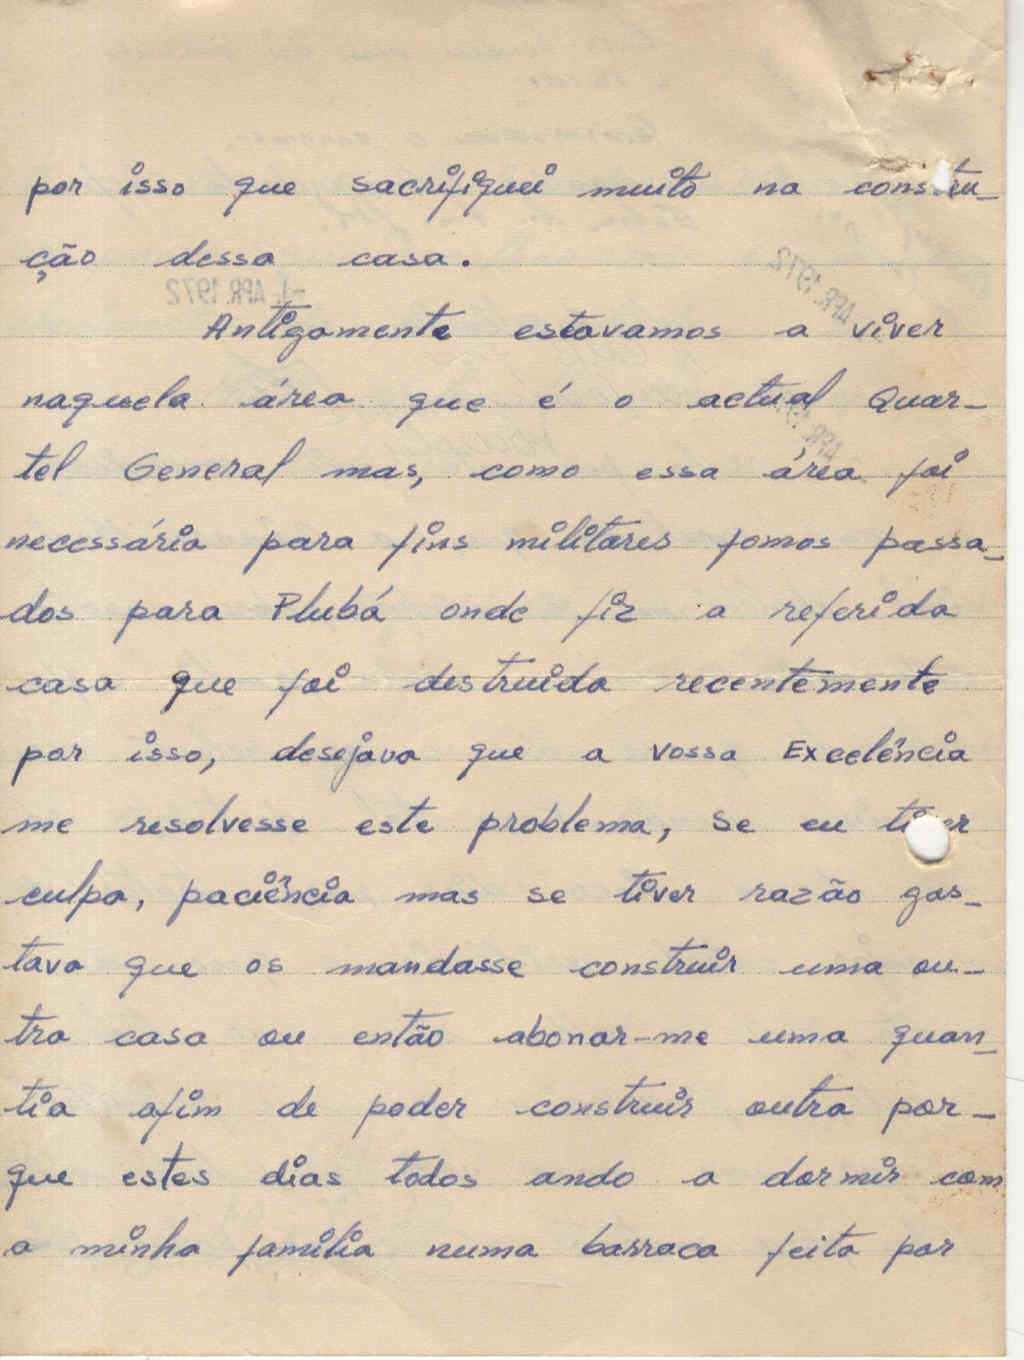 por isso que sacrifiquei muito na constru-
ção dessa casa.
-1. APR. 1972
APR. 1972
Antigamente estavamos a viver
naquela área que é o actual Quar-
tel General mas, como essa área foi
necessária para fins militares fomos passa-
dos para Plubá onde fiz a referida
casa que foi destruida recentemente
por isso, desejava que a Vossa Excelência
me resolvesse este problema, se eu tiver
culpa, paciência mas se tiver razão gos-
tava que os mandasse construir uma ou-
tra casa ou então abonar-me uma quan-
tia afim de poder construir outra por-
que estes dias todos ando a dormir com
a minha familia numa barraca feita por